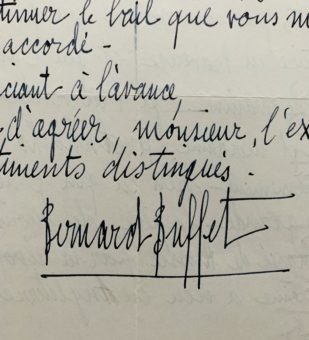 tinuer le bail que vous m
accordé -
ciant à l'avance,
d'agréer, monsieur, l'ex
timents distingués.
Bernard Buffet